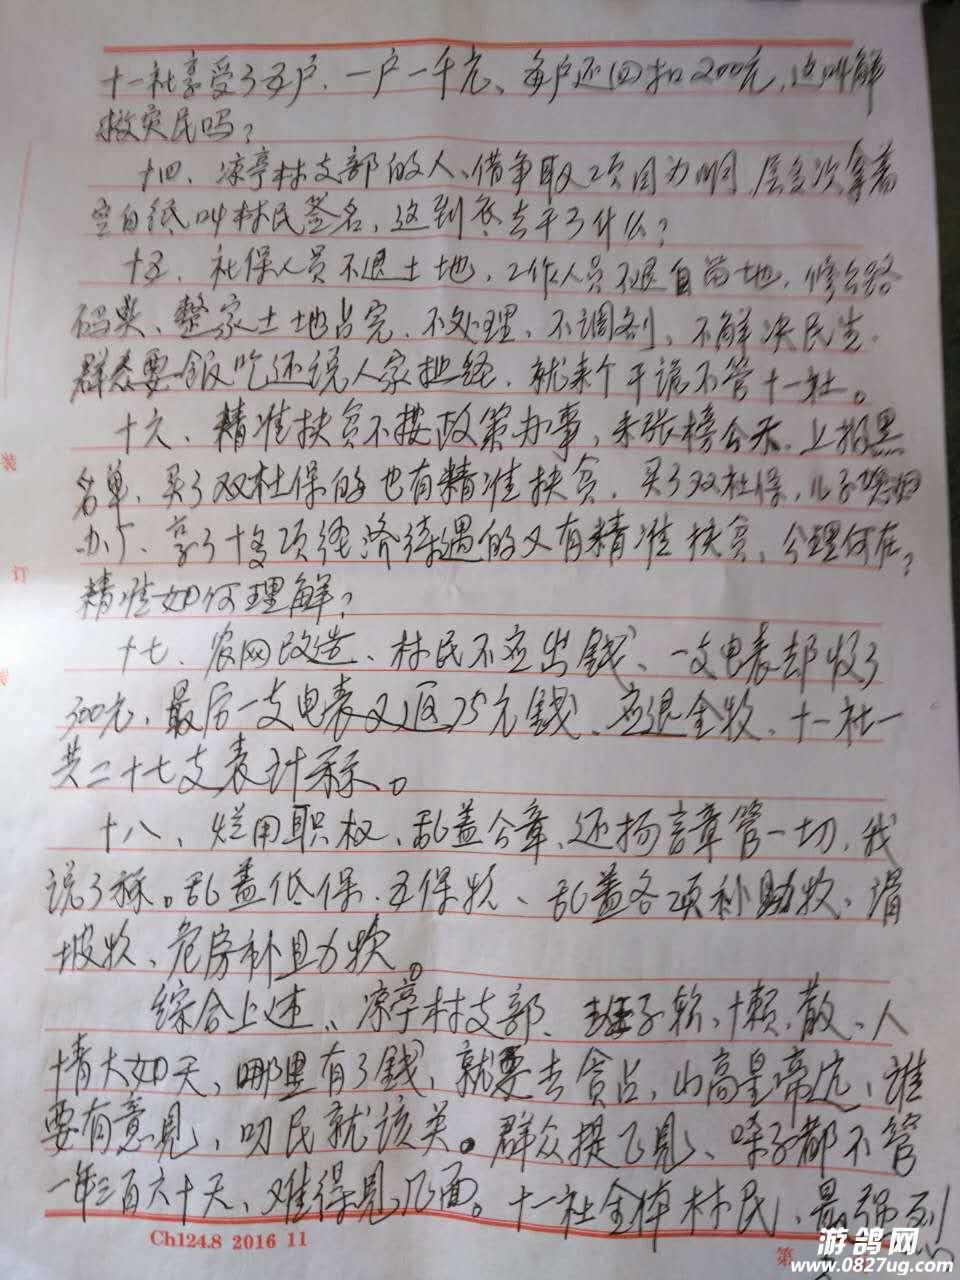 十一社享受了五户，一户一千元、每户还回扣200元，这叫解
救灾民吗？
十四、凉亭村支部的人、借争取项目为明，层多次拿着
空白纸叫村民签名，这到底去干了什么？
十五、社保人员不退土地，工作人员不退自留地，修公路
码头、整家土地占完、不处理、不调剂、不解决民生，
群众要饭吃还说人家扯经，就来个干诡不管十一社。
十六、精准扶贫不按政策办事，未张榜公示、上报黑
名单，买了双社保的也有精准扶贫，买了双社保，儿子
办厂、享了十多项经济待遇的又有精准扶贫，公理何在？
精准如何理解？
十七、农网改造、村民不应出钱、一支电表却收了
300元，最后一支电表又返75元钱、应退全款、十一社一
共二十七支表计示。
十八、烂用职权、乱盖公章、还扬言章管一切，我
说了称。乱盖低保、五保款、乱盖各项补助款、滑
坡款、危房补助款。
综合上述、凉亭村支部、班子软、懒、散、人
情大如天，哪里有了钱，就要去贪占，山高皇帝远，谁
要有意见，叨民就该关。群众提意见、啥子都不管
一年三百六十天，难得见几面。十一社全体村民，最强烈
Ch124.8 2016 11
第
装
订
游鸽网
www.0827ug.com